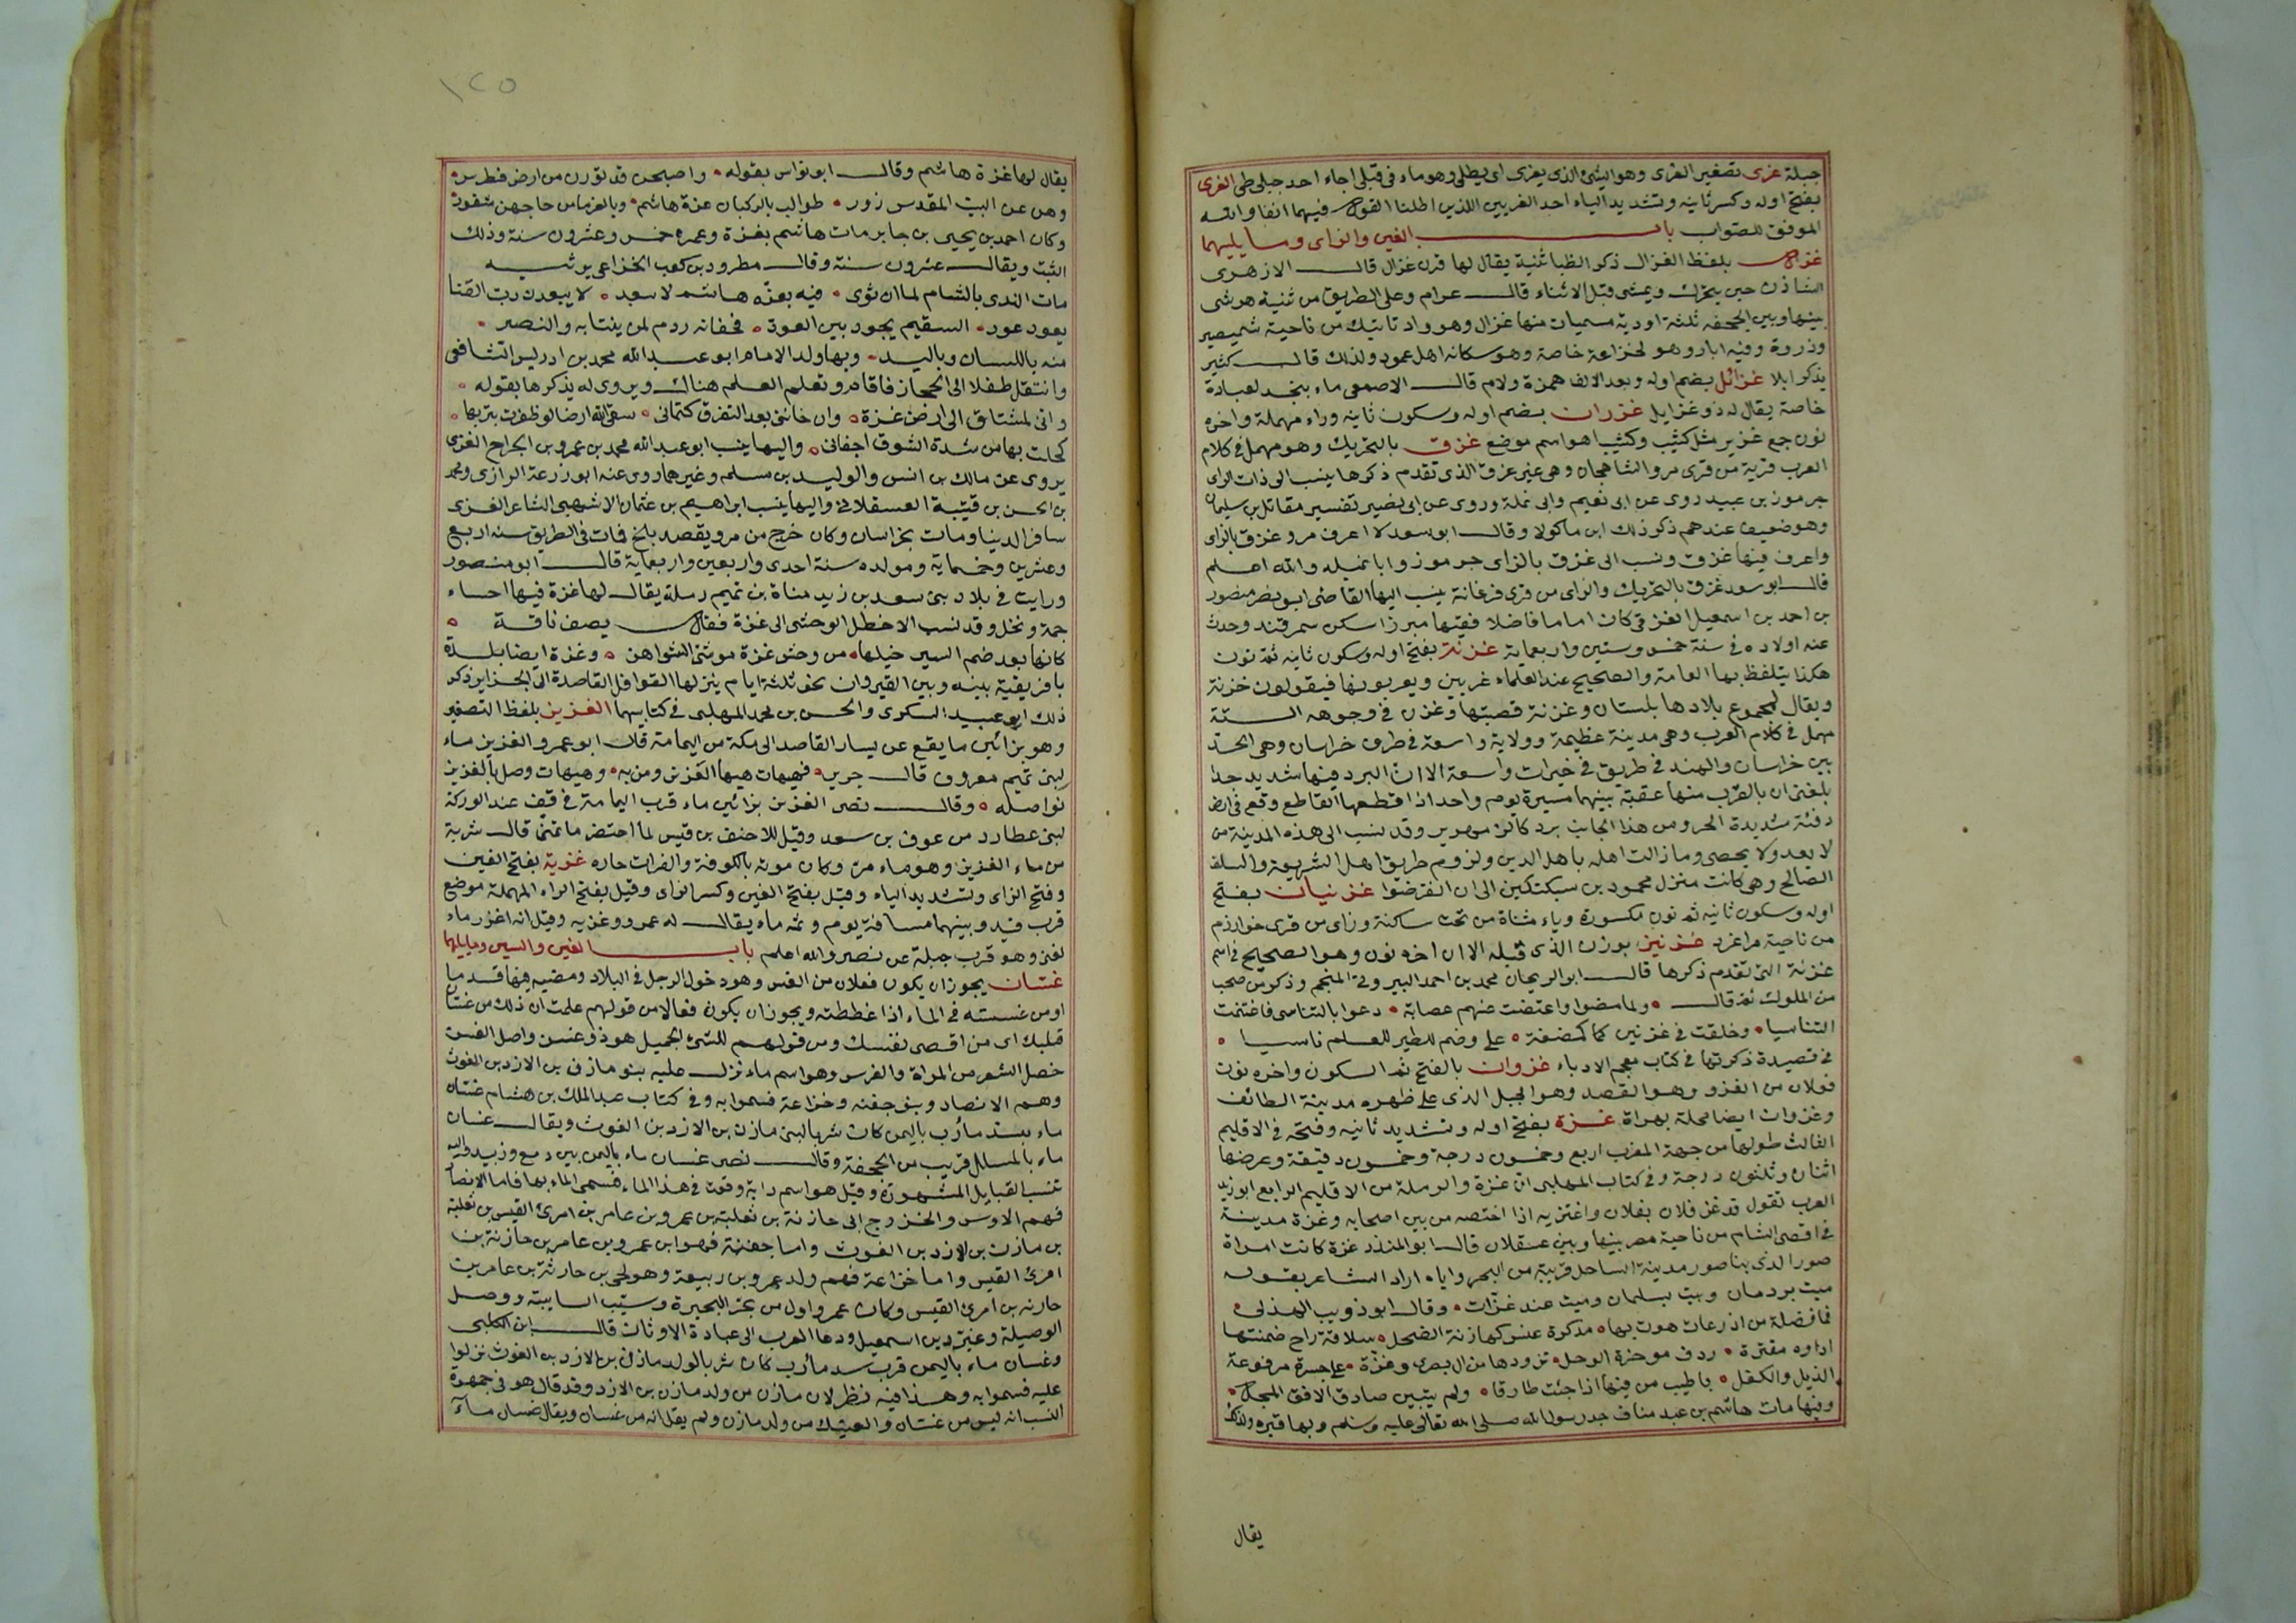 جبلة غرى تصغير الغرى وهو الشئ الذى يغرى اى يطلى وهو ماء فى قبلى اجاء احد جبلى طى الغرى
بفتح اوله وكسر ثانيه وتشديد الياء احد الغريين اللذين اطلنا القول فيهما انفا والله
الموفق للصواب باب الغين والزاى وما يليهما
غزال بلفظ الغزال ذكر الظبا ثنية يقال لها قرن غزال قال الازهرى
الشاذن حين يتحرك ويمشى قبل الاثناء قال عرام وعلى الطريق من ثنية هرشى
بينها وبين الجحفه ثلثة اودية مسميات منها غزال وهو واد تاتيك من ناحية شميصير
وذروة وفيه ابار وهو لخزاعة خاصة وهو سكانه اهل عمود ولذلك قال كثير
يذكر ابلا غزائل بضم اوله وبعد الالف همزة ولام قال الاصمعى ماء بنجد لعبادة
خاصة يقال له ذو غزايل غزران بضم اوله وسكون ثانيه وراء مهملة واخره
نون جمع غزير مثل كثيب وكثبا هو اسم موضع غزق بالتحريك وهو مهمل فى كلام
العرب قرية من قرى مرو الشاهجان وهى غير غزق الذى تقدم ذكرها ينسب الى ذات الزاى
جرموز بن عبيد روى عن ابى نعيم وابى نملة وروى عن ابى نضير تفسير مقاتل بن سليمان
وهو ضعيف عندهم ذكر ذلك ابن ماكولا وقال ابو سعد لا اعرف مرو غزق بالزاى
واعرف فيها غزق ونسب الى غزق بالزاى جرموز وابا نميله والله اعلم
قال ابو سعد غزق بالتحريك والزاى من قرى فرغانة ينسب اليها القاضى ابو نصر منصور
بن احمد بن اسمعيل الغزقى كان اماما فاضلا فقيها مبرزا سكن سمرقند وحدث
عنه اولاده فى سنة خمس وستين واربعماية غزنة بفتح اوله وسكون ثانيه ثم نون
هكذا يتلفظ بها العامة والصحيح عند العلماء غزنين ويعربونها فيقولون جزنة
ويقال لمجموع بلادها بلستان وغزنة قصبتها وغزن فى وجوهه الستة
مهمل فى كلام العرب وهى مدينة عظيمة وولاية واسعة فى طرف خراسان وهى الحد
بين خراسان والهند فى طريق فى خيرات واسعة الا ان البرد فيها شديد جدا
بلغنى ان بالقرب منها عقبة بينهما مسيرة يوم واحد اذا قطعها القاطع وقع فى ارض
دفئة شديدة الحر ومن هذا الجانب برد كالزمهرير وقد نسب الى هذه المدينة من
لا يعد ولا يحصى وما زالت اهله باهل الدين ولزوم طريق اهل الشريعة والسلف
الصالح وهى كانت منزل محمود بن سبكتكين الى ان انقرضوا غزنيان بفتح
اوله وسكون ثانيه ثم نون مكسورة وياء مثناة من تحت ساكنة وزاى من قرى خوارزم
من ناحية مراغرد غزنين بوزن الذى قبله الا ان اخره نون وهو الصحيح فى اسم
غزنة التى تقدم ذكرها قال ابو الريحان محمد بن احمد البيرونى المنجم وذكر من صحب
من الملوك ثم قال ولما مضوا واعتضت منهم عصابة دعوا بالتناسى فاغتنمت
التناسيا وخلفت فى غزنين كما كمضغة على وضم للطير للعلم ناسيا
فى قصيدة ذكرتها فى كتاب معجم الادباء غزوان بالفتح ثم السكون واخره نون
فعلان من الغزو وهو القصد وهو الجبل الذى على ظهره مدينة الطائف
وغزوان ايضا محلة بهراة غزة بفتح اوله وتشديد ثانيه وفتحه فى الاقليم
الثالث طولها من جهة المغرب اربع وخمسون درجة وخمسون دقيقة وعرضها
اثنان وثلثون درجة وفى كتاب المهلبى ان غزة والرملة من الاقليم الرابع ابو زيد
العرب تقول قد غز فلان بفلان واغتز به اذا اختصه من بين اصحابه وغزة مدينة
فى اقصى الشام من ناحية مصر بينها وبين عسقلان قال ابو المنذر غزة كانت امراة
صور الذى بنا صور مدينة الساحل قريبة من البحر واياه اراد الشاعر بقوله
ميت بردمان وميت بسلمان وميت عند غزات وقال ابو ذويب الهذلى
فما فضلة من اذرعات هوت بها مذكرة عنس كهازئة الضحل سلافة راح ضمنتها
اداوه مقترة ردف موخرة الرحل تزودها من ال بصرى وغزة على جسرة مرفوعة
الذيل والكفل باطيب من فيها اذا جئت طارقا ولم يتبين صادق الافق المجل
وفيها مات هاشم بن عبد مناف جد رسول الله صلى الله تعالى عليه وسلم وبها قبره ولذلك
يقال
١٢٥
يقال لها غزة هاشم وقال ابو نواس بقوله واصبحن قد فوزن من ارض فطرس
وهن عن البيت المقدس زور طوالب بالركبان غزة هاشم وبالفرما من حاجهن شقور
وكان احمد بن يحيى بن جابر مات هاشم بغزة وعمره خمس وعشرون سنة وذلك
الثبت ويقال عشرون سنة وقال مطرود بن كعب الخزاعى يرثيه
مات الندى بالشام لما ان ثوى فيه بغزه هاشم لا يبعد لا يبعدن رب القنا
يعود عود السقيم يجود بين العود فجفانه ردم لمن ينتابه والنصر
منه باللسان وباليد وبها ولد الامام ابو عبد الله محمد بن ادريس الشافعى
وانتقل طفلا الى الحجاز فاقام وتعلم العلم هناك ويروى له يذكرها بقوله
وانى لمشتاق الى ارض غزة وان خاننى بعد التفرق كتمانى سقى الله ارضا لو ظفرت بتربها
كحلت بها من شدة الشوق اجفانى واليها ينسب ابو عبد الله محمد بن عمرو بن الجراح الغزى
يروى عن مالك بن انس والوليد بن مسلم وغيرهما روى عنه ابو زرعة الرازى ومحمد
بن الحسن بن قتيبة العسقلانى واليها ينسب ابراهيم بن عثمان الاشهبى الشاعر الغزى
سافر الدنيا ومات بخراسان وكان خرج من مرو يقصد بلخ فمات فى الطريق سنة اربع
وعشرين وخمماية ومولده سنة احدى واربعين واربعماية قال ابو منصور
ورايت فى بلاد بنى سعد بن زيد مناة بن تميم رملة يقال لها غزة فيها احساء
جمة ونخل وقد نسب الاخطل الوحشى الى غزة فقال يصف ناقة
كانها بعد ضم السير خيلها من وحش غزة موشى الشواهن وغزة ايضا بلدة
بافريقية بينه وبين القيروان نحو ثلثة ايام ينزلها القوافل القاصدة الى الجزاير ذكر
ذلك ابو عبيد السكرى والحسن بن محمد المهلبى فى كتابيهما الغزيز بلفظ التصغير
وهو بزائين ما يقع عن يسار القاصد الى مكة من اليمامة قال ابو عمرو الغزيز ماء
لبنى تميم معروف قال جرير فهيهات هيها الغزيز ومن به وهيهات وصل بالغزيز
نواصله وقال نصر الغزيز بزائين ماء قرب اليمامة فى قف عند الوركة
لبنى عطارد من عوف بن سعد وقيل للاحنف بن قيس لما احتضر ما تتمنى قال شربة
من ماء الغزيز وهو ماء مر وكان موته بالكوفة والفرات جاره غزية بفتح الغين
وفتح الزاى وتشديد الياء وقيل بفتح الغين وكسر الزاى وقيل بفتح الراء المهملة موضع
قرب فيد وبينهما مسافة يوم وثم ماء يقال له عمرو وغزيه وقيل انه اغزر ماء
لغنى وهو قرب جبلة عن نصر والله اعلم باب الغين والسين وما يليهما
غسان يجوز ان يكون فعلان من الغس وهو دخول الرجل فى البلاد ومضيه فيها قدما
او من غسسته فى الماء اذا غططته ويجوز ان يكون فعالا من قولهم علمت ان ذلك من غسان
قلبك اى من اقصى نفسك ومن قولهم للشئ الجميل هو ذو غسن واصل الغسن
خصل الشعر من المراة والفرس وهو اسم ماء نزل عليه بنو مازن بن الازد بن الغوث
وهم الانصار وبنو جفنه وخزاعة فسموا به وفى كتاب عبد الملك بن هشام غسان
ماء بسد مارب باليمن كان شربا لبنى مازن بن الازد بن الغوث ويقال غسان
ماء بالمشلل قريب من الجحفة وقال نصر غسان ماء باليمن بين رمع وزبيد واليه
تنسب القبايل المشهورة وقيل هو اسم دابة وقعت فى هذا الماء فسمى الماء بها فاما الانصار
فهم الاوس والخزرج ابنى حارثة بن ثعلبة بن عمرو بن عامر بن امرئ القيس بن ثعلبة
بن مازن بن الازد بن الغوث واما جفنة فهو ابن عمرو بن عامر بن حارثة بن
امرئ القيس واما خزاعة فهم ولد عمرو بن ربيعة وهو لحى بن حارثة بن عامر بن
حارثه بن امرئ القيس وكان عمرو اول من بحر البحيرة وسيب السايبة ووصل
الوصيلة وغير دين اسمعيل ودعا العرب الى عبادة الاوثان قال ابن الكلبى
وغسان ماء باليمن قرب سد مارب كان شربا لولد مازن بن الازد بن الغوث نزلوا
عليه فسموا به وهذا فيه نظر لان مازن من ولد مازن بن الازد وقد قال هو فى جمهرة
النسب انه ليس من غسان والعتيك من ولد مازن ولم يقل انه من غسان ويقال غسان ماء